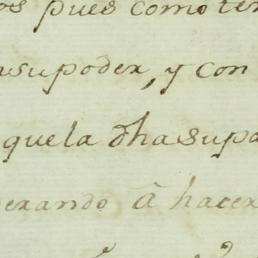 os pues como ter
asupoder, y con
quela dha supa
erando â hacer